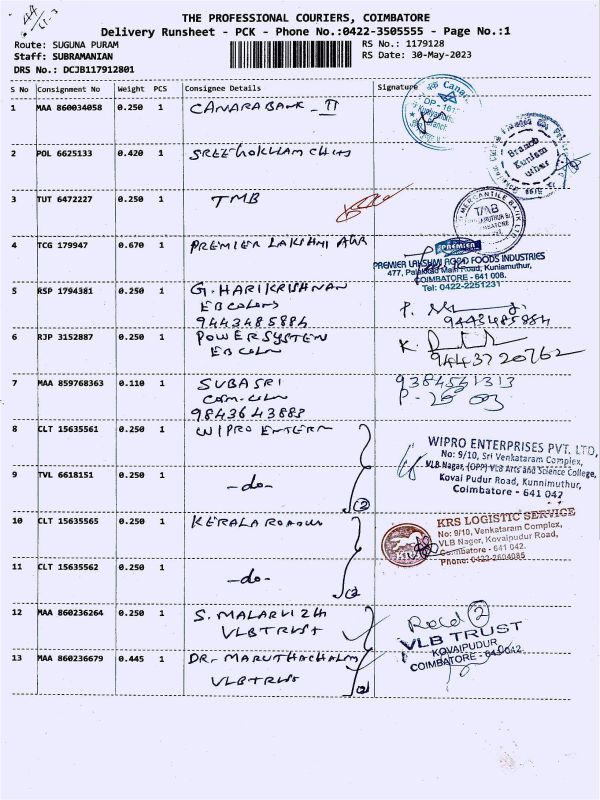 THE PROFESSIONAL COURIERS, COIMBATORE
Delivery Runsheet - PCK - Phone No.:0422-3505555 - Page No.:1
Route: SUGUNA PURAM RS No.: 1179128
Staff: SUBRAMANIAN RS Date: 30-May-2023
DRS No.: DCJB117912801
S No Consignment No Weight PCS Consignee Details Signature
1 MAA 860034058 0.250 1 CANARA BANK - II
2 POL 6625133 0.420 1
3 TUT 6472227 0.250 1 TMB
TMB
4 TCG 179947 0.670 1 PREMIER LAKSHMI AGR
PREMIER
PREMIER LAKSHMI AGRO FOODS INDUSTRIES
477, Palakkad Main Road, Kuniamuthur,
COIMBATORE - 641 008.
Tel: 0422-2251231
5 RSP 1794381 0.250 1 G. HARIKRISHNAN
EB COLONY
9443485884
9443485884
6 RJP 3152887 0.250 1 POWER SYSTEM
EB COLN
9443720762
7 MAA 859768363 0.110 1 SUBASRI
9843643883
9384561313
8 CLT 15635561 0.250 1 WIPRO ENTERN
WIPRO ENTERPRISES PVT. LTD,
No: 9/10, Sri Venkataram Complex,
VLB Nagar, (OPP) VLB Arts and Science College,
Kovai Pudur Road, Kunnimuthur,
Coimbatore - 641 042
9 TVL 6618151 0.250 1 -do- (2)
10 CLT 15635565 0.250 1 KERALA ROADW
KRS LOGISTIC SERVICE
No: 9/10, Venkataram Complex,
VLB Nager, Kovaipudur Road,
Coimbatore - 641 042.
Phone: 0422-2604085
11 CLT 15635562 0.250 1 -do- (2)
12 MAA 860236264 0.250 1 S. MALARVIZH
VLB TRUST
Recd (2)
VLB TRUST
KOVAIPUDUR
COIMBATORE - 641 042
13 MAA 860236679 0.445 1 DR. MARUTHACHALM
VLB TRUST (2)